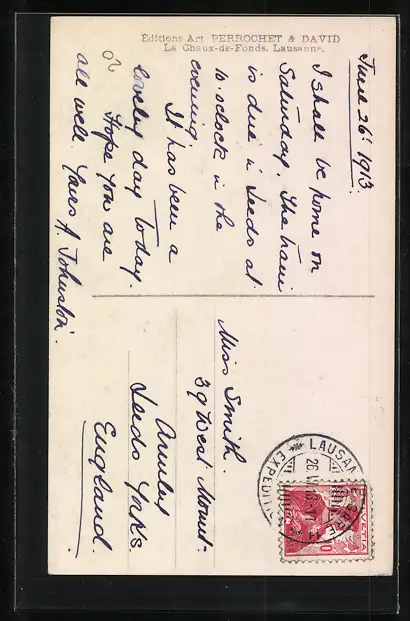 Editions Art PERROCHET & DAVID
La Chaux-de-Fonds. Lausanne.
June 26' 1913.
I shall be home on
Saturday. The train
is due in Leeds at
10 o'clock in the
evening
It has been a
lovely day today.
Hope you are
all well. Yours A. Johnston.
Miss Smith.
39 West Mount.
Armley
Leeds Yorks.
England.
LAUSANNE
EXPEDITI
HELVETIA
10